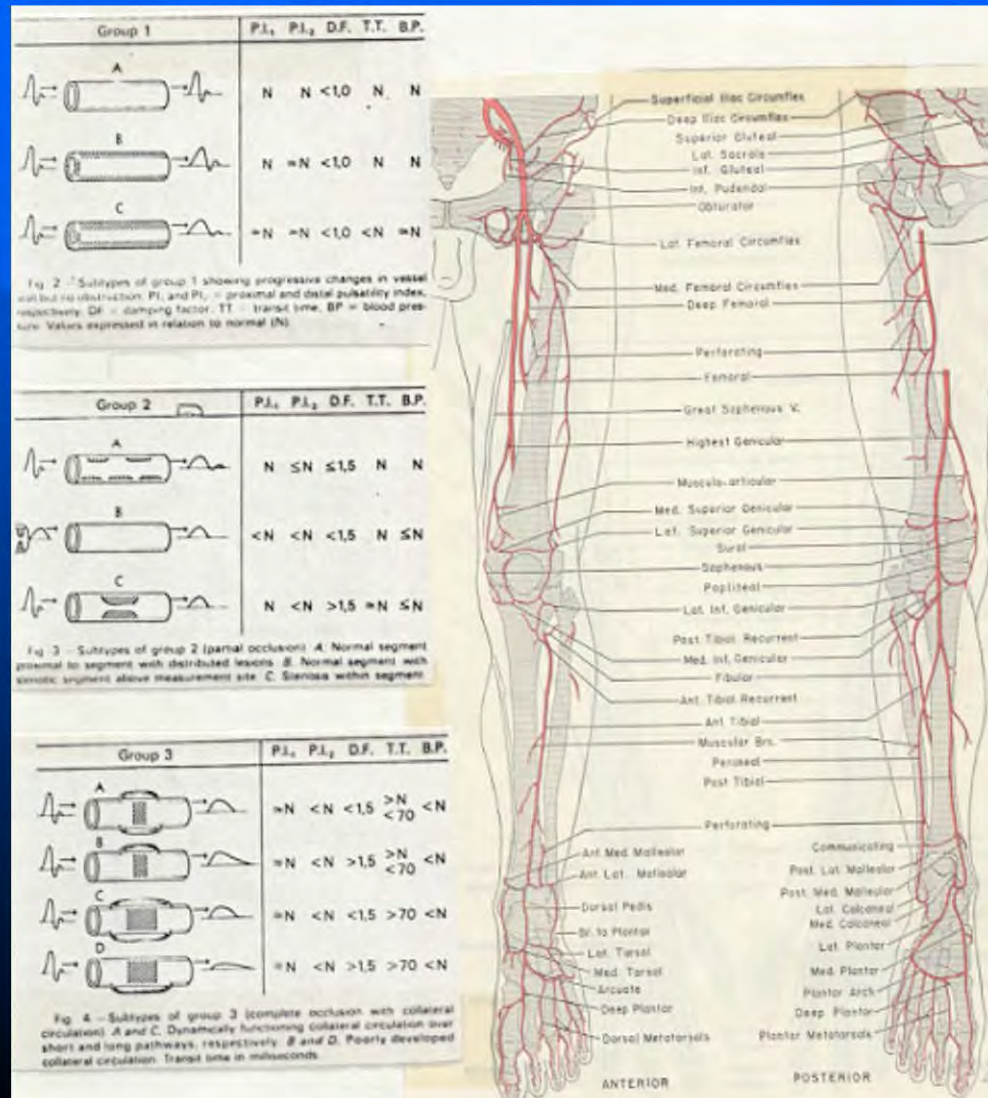 Group 1 P.I.₁ P.I.₂ D.F. T.T. B.P.
A
N N <1,0 N N
B
N ≈N <1,0 N N
C
≈N ≈N <1,0 <N ≈N
Fig 2 - Subtypes of group 1 showing progressive changes in vessel
wall but no obstruction. PI₁ and PI₂ = proximal and distal pulsatility index,
respectively. DF = damping factor. TT = transit time, BP = blood pres-
sure. Values expressed in relation to normal (N).
Group 2 P.I.₁ P.I.₂ D.F. T.T. B.P.
A
N ≤N ≤1,5 N N
B
<N <N <1,5 N ≤N
C
N <N >1,5 ≈N ≤N
Fig 3 - Subtypes of group 2 (partial occlusion) A. Normal segment
proximal to segment with distributed lesions. B. Normal segment with
stenotic segment above measurement site. C. Stenosis within segment.
Group 3 P.I.₁ P.I.₂ D.F. T.T. B.P.
A
≈N <N <1,5 >N <70 <N
B
≈N <N >1,5 >N <70 <N
C
≈N <N <1,5 >70 <N
D
≈N <N >1,5 >70 <N
Fig. 4 - Subtypes of group 3 (complete occlusion with collateral
circulation). A and C. Dynamically functioning collateral circulation over
short and long pathways, respectively. B and D. Poorly developed
collateral circulation. Transit time in miliseconds.
Superficial Iliac Circumflex
Deep Iliac Circumflex
Superior Gluteal
Lat. Sacrals
Inf. Gluteal
Int. Pudendal
Obturator
Lat. Femoral Circumflex
Med. Femoral Circumflex
Deep Femoral
Perforating
Femoral
Great Saphenous V.
Highest Genicular
Musculo-articular
Med. Superior Genicular
Lat. Superior Genicular
Sural
Saphenous
Popliteal
Lat. Inf. Genicular
Post. Tibial Recurrent
Med. Inf. Genicular
Fibular
Ant. Tibial Recurrent
Ant. Tibial
Muscular Brs.
Peroneal
Post Tibial
Perforating
Ant. Med. Malleolar
Ant. Lat. Malleolar
Dorsal Pedis
Br. to Plantar
Lat. Tarsal
Med. Tarsal
Arcuate
Deep Plantar
Dorsal Metatarsals
Communicating
Post. Lat. Malleolar
Post. Med. Malleolar
Lat. Calcaneal
Med. Calcaneal
Lat. Plantar
Med. Plantar
Plantar Arch
Deep Plantar
Plantar Metatarsals
ANTERIOR
POSTERIOR